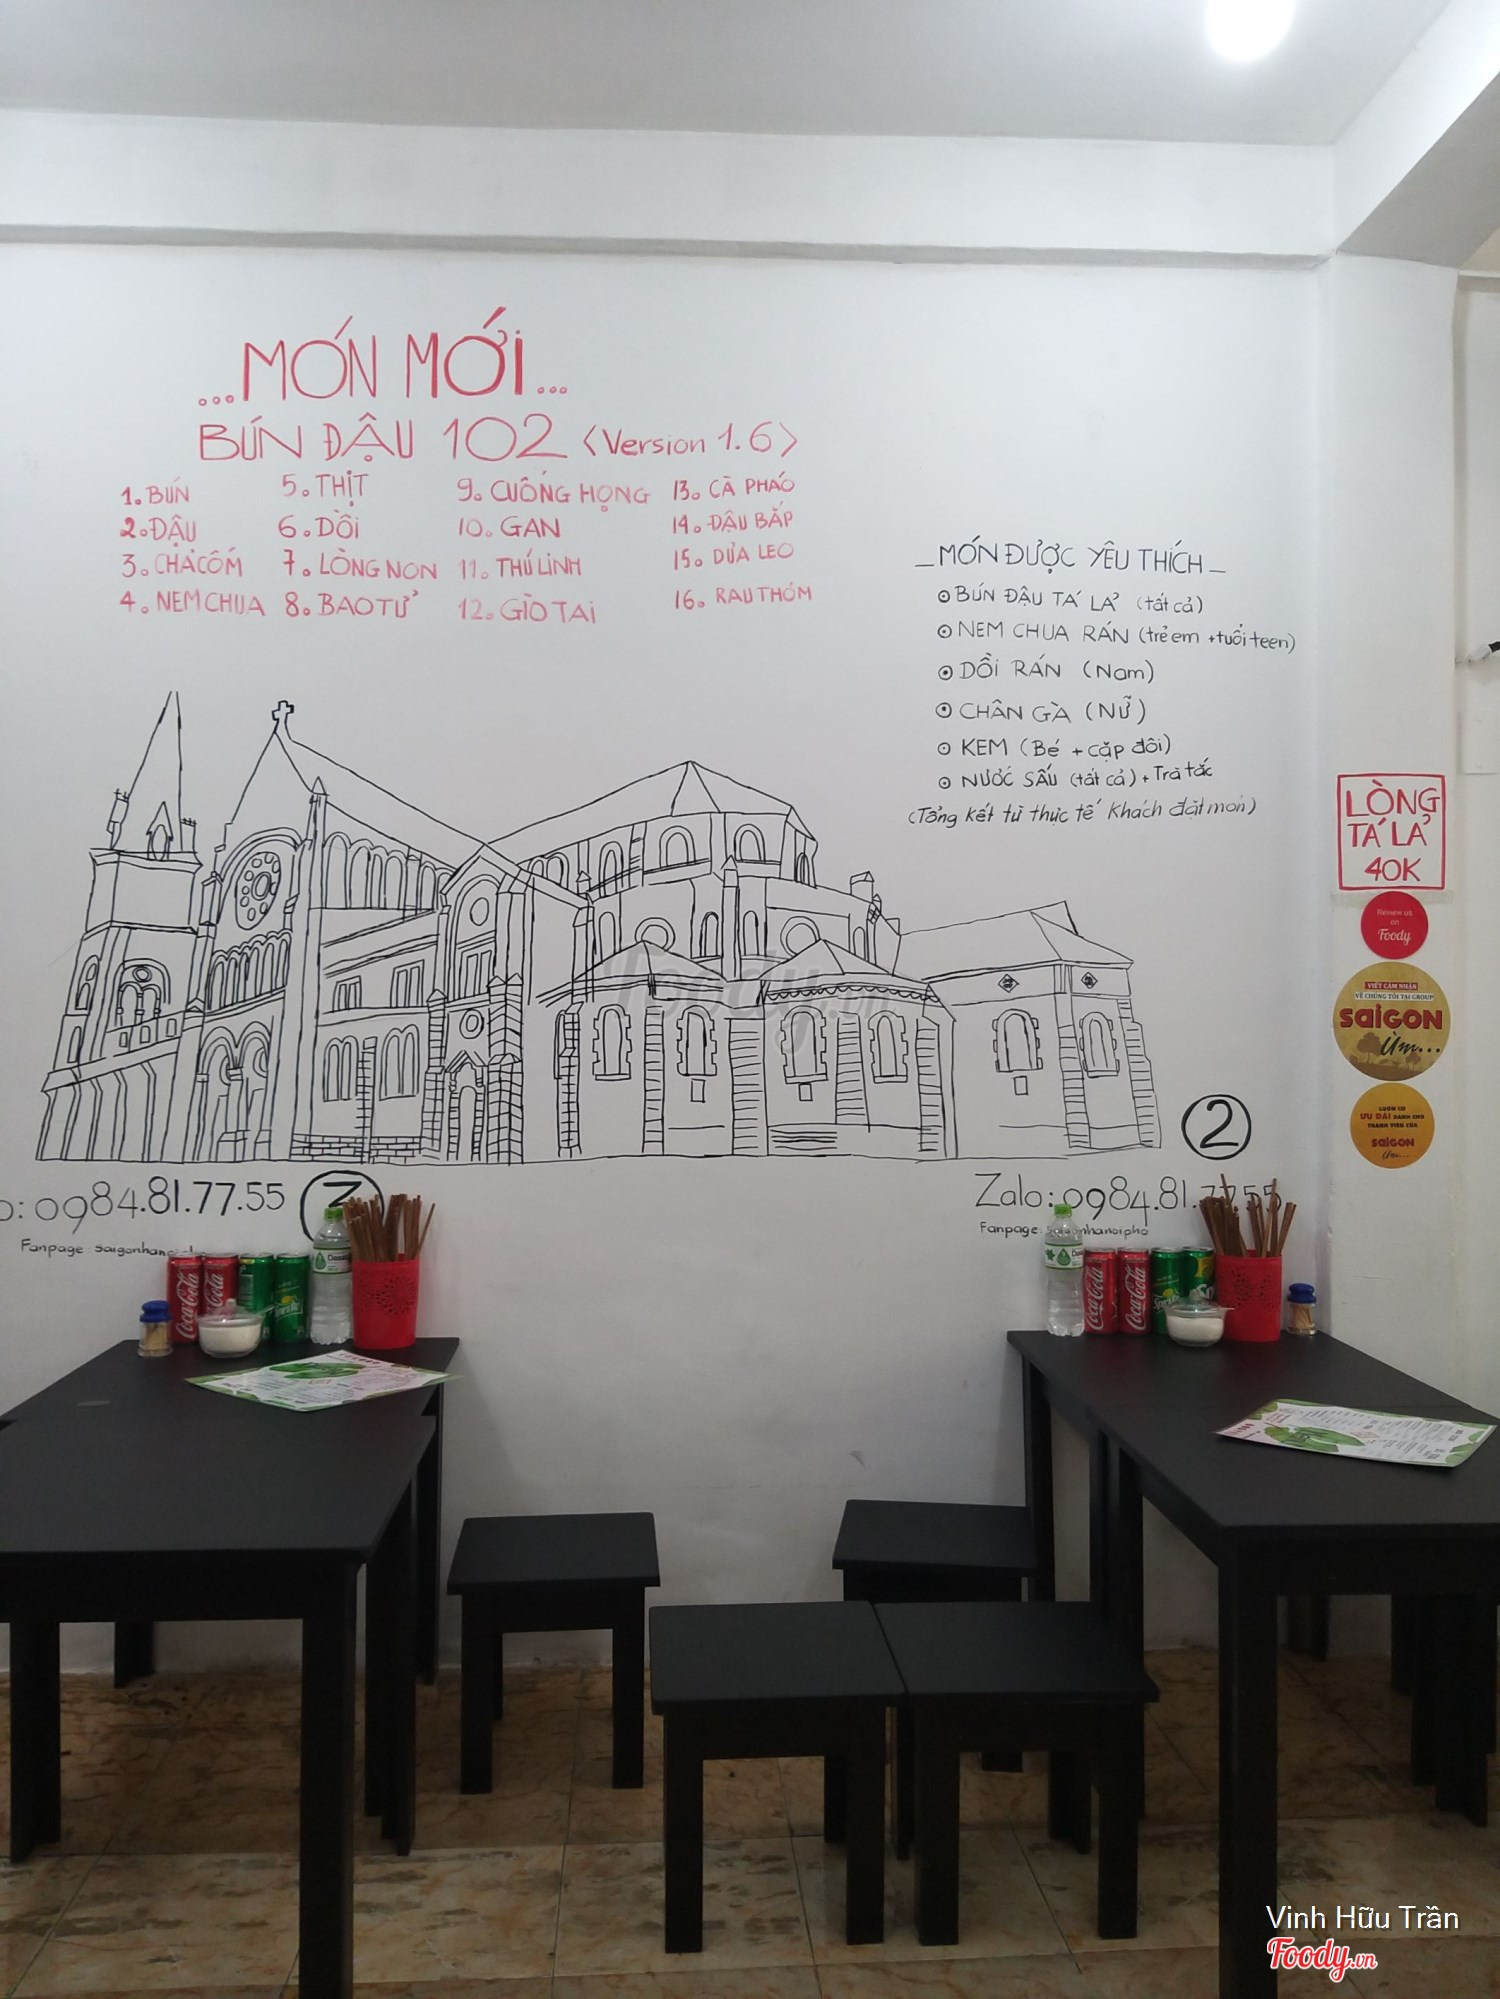 ...MÓN MỚI...
BÚN ĐẬU 102 <Version 1.6>
1. BÚN
2. ĐẬU
3. CHẢ CỐM
4. NEM CHUA
5. THỊT
6. DỒI
7. LÒNG NON
8. BAO TỬ
9. CUỐNG HỌNG
10. GAN
11. THỦ LINH
12. GIÒ TAI
13. CÀ PHÁO
14. ĐẬU BẮP
15. DƯA LEO
16. RAU THƠM
_MÓN ĐƯỢC YÊU THÍCH_
BÚN ĐẬU TÁ LẢ (tất cả)
NEM CHUA RÁN (trẻ em + tuổi teen)
DỒI RÁN (Nam)
CHÂN GÀ (NỮ)
KEM (Bé + cặp đôi)
NƯỚC SẤU (tất cả) + Trà tắc
(Tổng kết từ thực tế khách đặt món)
LÒNG
TÁ LẢ
40K
Review us
on
Foody
VIẾT CẢM NHẬN
VỀ CHÚNG TÔI TẠI GROUP
SAIGON
Ùm...
LUÔN CÓ
ƯU ĐÃI DÀNH CHO
THÀNH VIÊN CỦA
SAIGON
Ùm...
Foody.vn
2
o: 0984.81.77.55
3
Fanpage: saigonhanoipho
Zalo: 0984.81.77.55
Fanpage: saigonhanoipho
Coca-Cola
Coca-Cola
Sprite
Coca-Cola
Coca-Cola
Sprite
Vinh Hữu Trần
Foody.vn